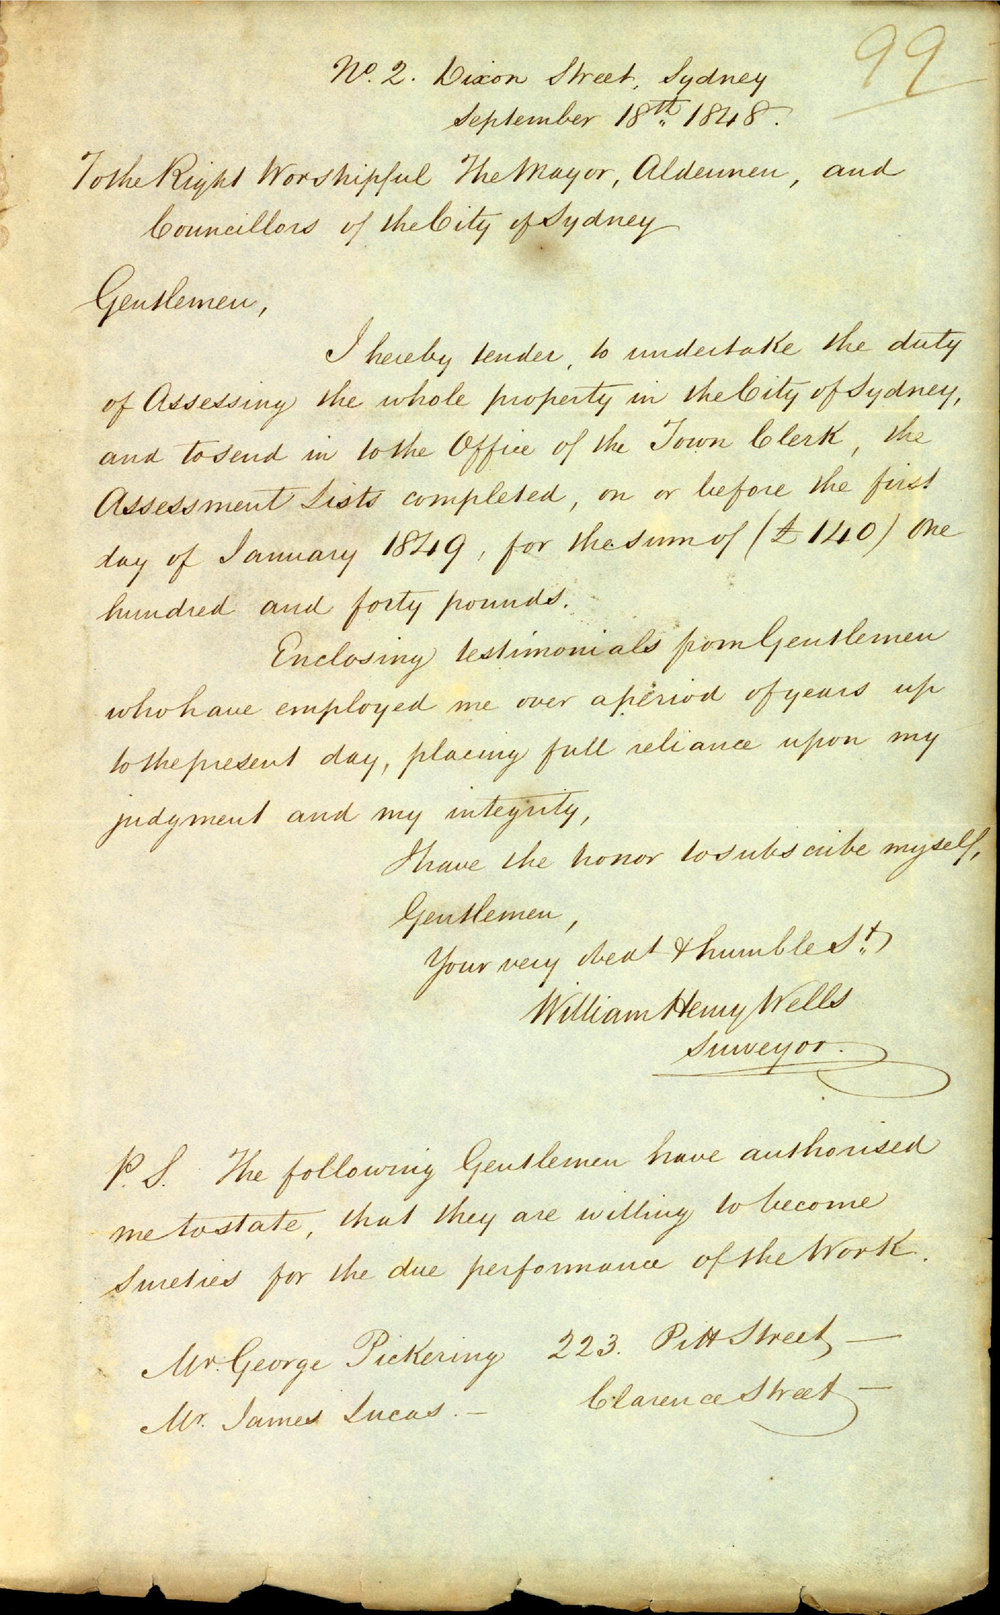 99
No. 2. Dixon Street, Sydney
September 18th. 1848.
To the Right Worshipful The Mayor, Aldermen, and
Councillors of the City of Sydney
Gentlemen,
I hereby tender, to undertake the duty
of Assessing the whole property in the City of Sydney,
and to send in to the Office of the Town Clerk, the
Assessment Lists completed, on or before the first
day of January 1849, for the sum of (£140) One
hundred and forty pounds.
Enclosing testimonials from Gentlemen
who have employed me over a period of years up
to the present day, placing full reliance upon my
judgment and my integrity,
I have the honor to subscribe myself,
Gentlemen,
Your very obedt & humble St.
William Henry Wells
Surveyor.
P.S. The following Gentlemen have authorised
me to state, that they are willing to become
Sureties for the due performance of the Work.
Mr. George Pickering 223. Pitt Street —
Mr. James Lucas. — Clarence Street —